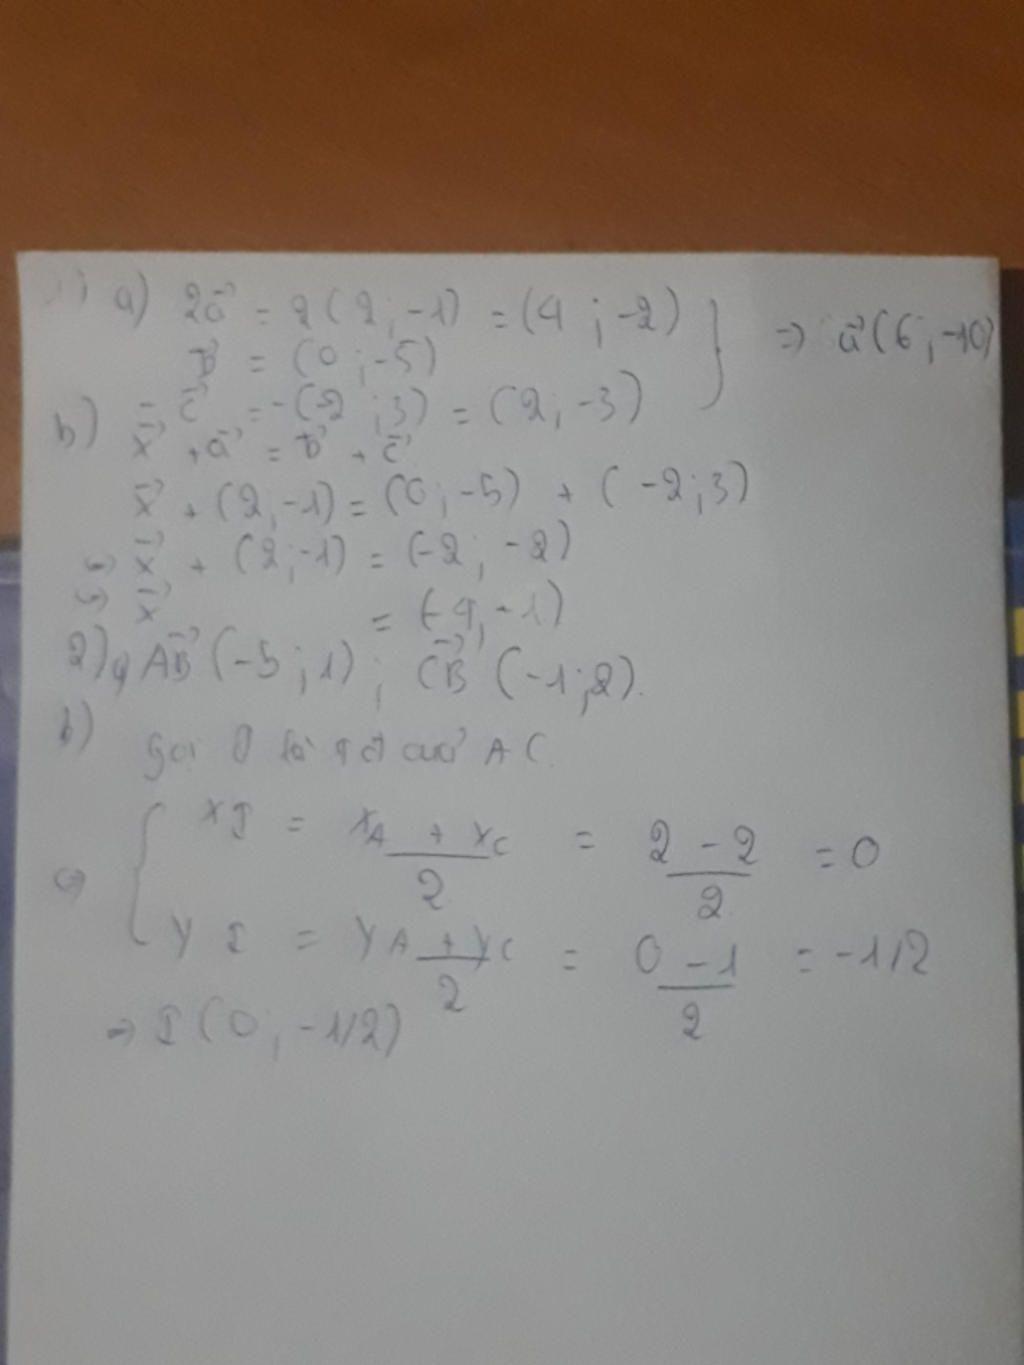 1) a) 2a⃗ = 2(2; -1) = (4; -2)
b⃗ = (0; -5)
-c⃗ = -(-2; 3) = (2; -3)
} => u⃗(6; -10)
b) x⃗ + a⃗ = b⃗ + c⃗
x⃗ + (2; -1) = (0; -5) + (-2; 3)
=> x⃗ + (2; -1) = (-2; -2)
=> x⃗ = (-4; -1)
2) a) AB⃗ (-5; 1); CB⃗ (-1; 2).
b) gọi I là t đ của AC.
=> { xI = (xA + xC)/2 = (2 - 2)/2 = 0
yI = (yA + yC)/2 = (0 - 1)/2 = -1/2
=> I(0; -1/2)